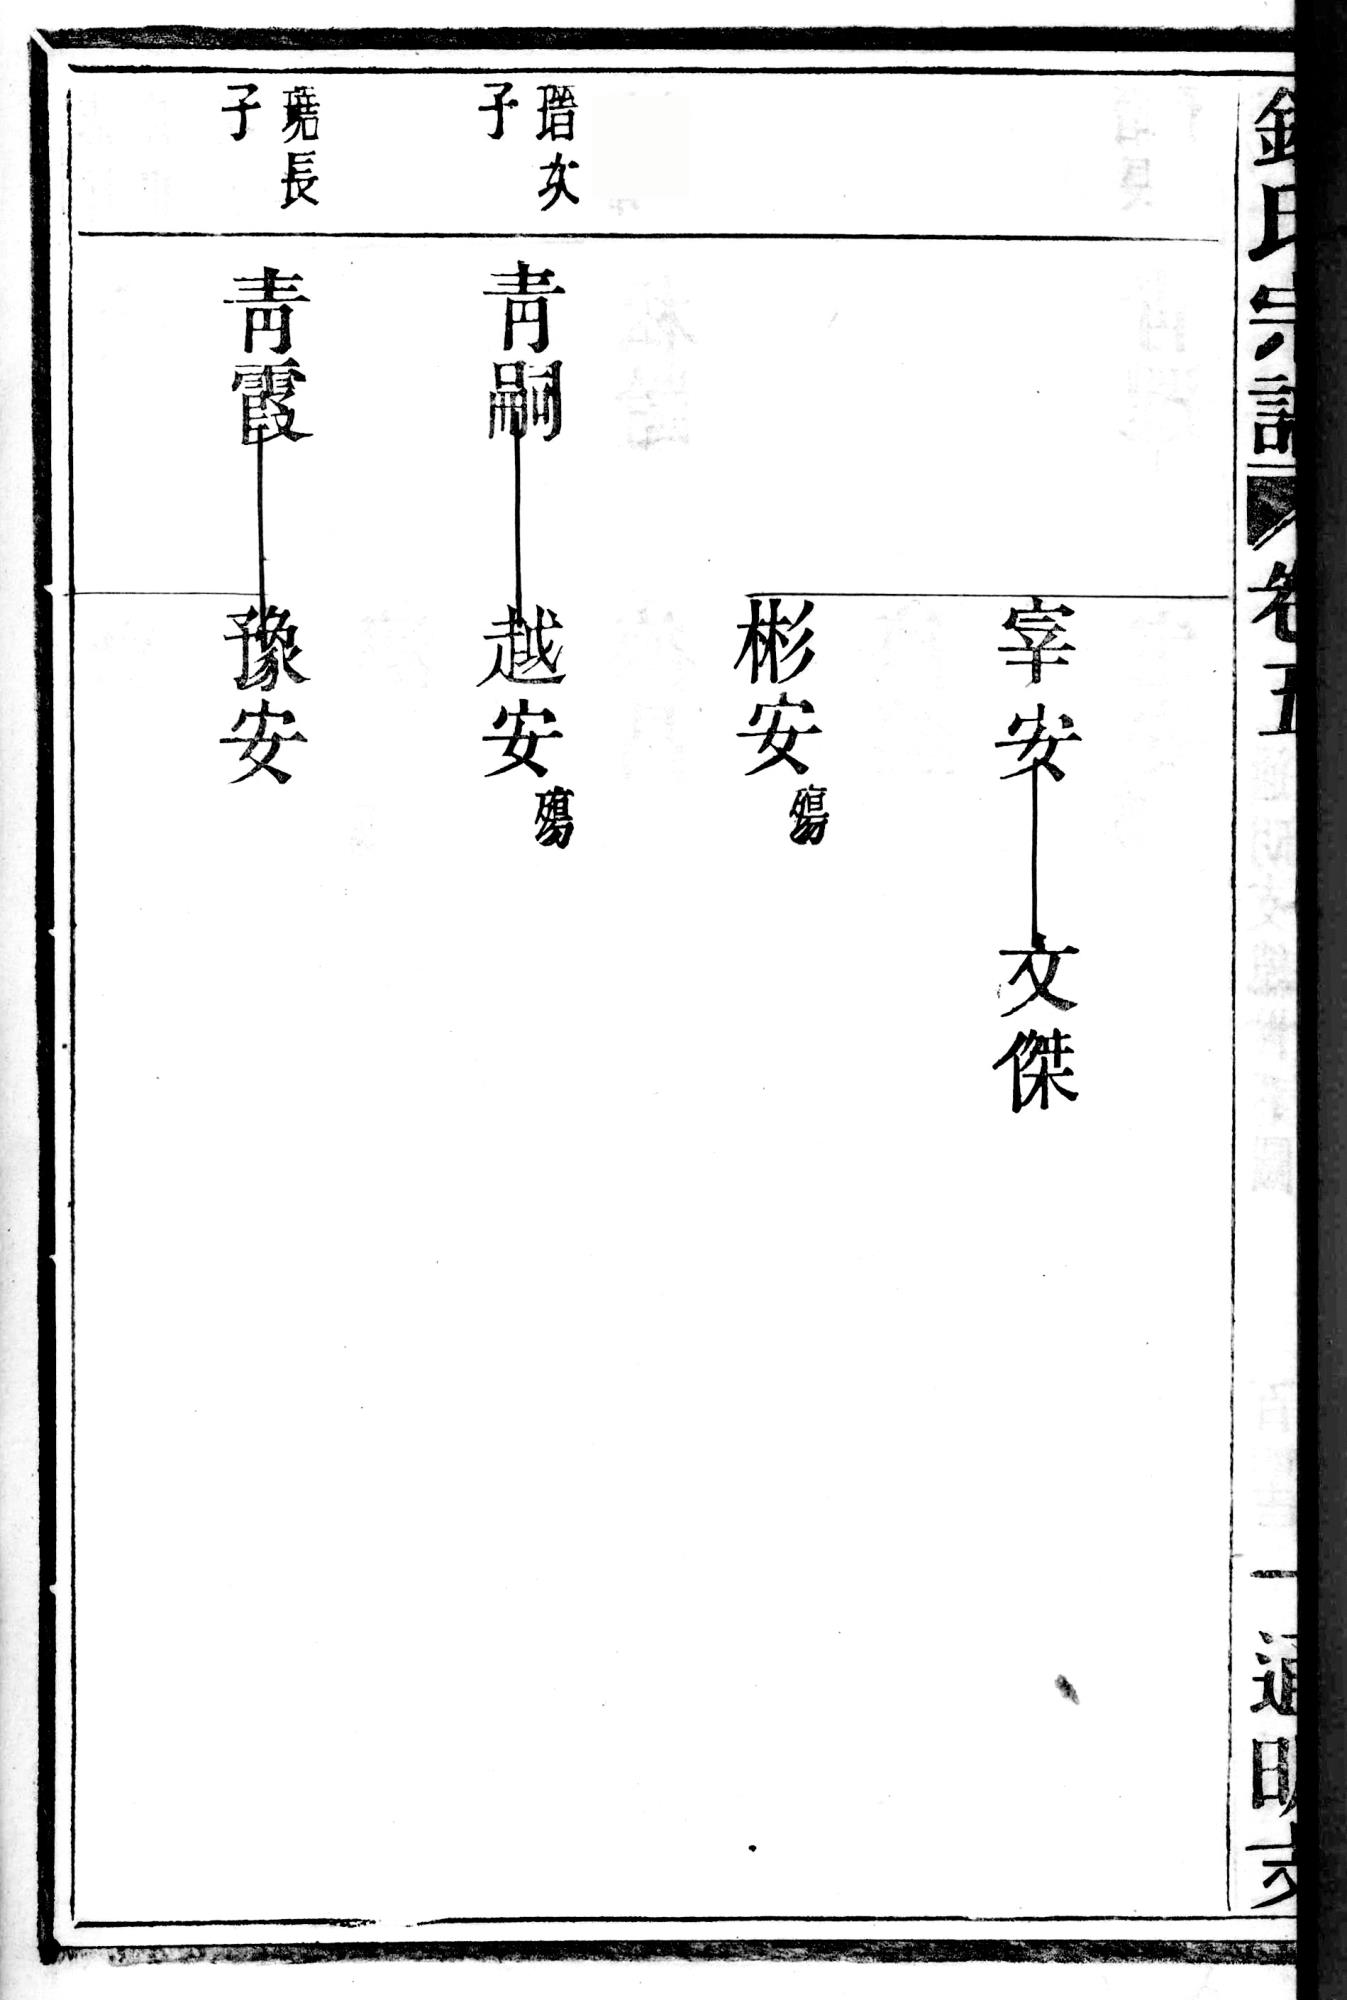 氏宗譜
卷五
一
通明支
宰安
文傑
彬安
殤
瑨次
子
青嗣
越安
殤
長
子
青霞
豫安